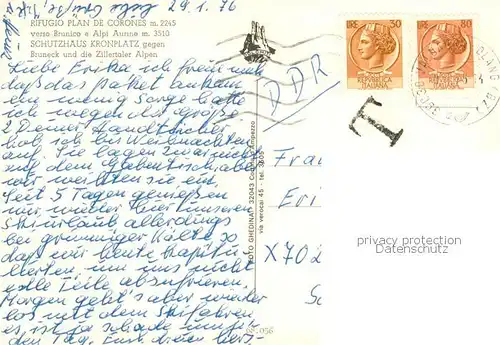 29.1.76
RIFUGIO PLAN DE CORONES m. 2245
verso Brunico e Alpi Aurine m. 3510
SCHUTZHAUS KRONPLATZ gegen
Bruneck und die Zillertaler Alpen
Liebe Erika ich freu mich
daß das Paket ankam
ein wenig Sorge hatte
ich wegen der Größe
2 Deiner Handtücher
hob ich bis Weihnachten
auf. Die
auf dem
Seit 5 Tagen genießen
wir wieder hier unseren
Skiurlaub allerdings
bei grimmiger Kälte so
daß wir heute kapitu-
lierten um uns nicht
alle Teile abzufrieren.
Morgen geht's aber wieder
los mit dem Skifahren
es ist ja schade um je-
den Tag. Eure drei
FOTO GHEDINA - 32043 Cortina d'Ampezzo
via verocai 45 - tel. 3605
056
DDR
IRS 30
REPUBBLICA
ITALIANA
IRS 80
REPUBBLICA
ITALIANA
T
Frau
Eri
X702
privacy protection
© oldthing.de